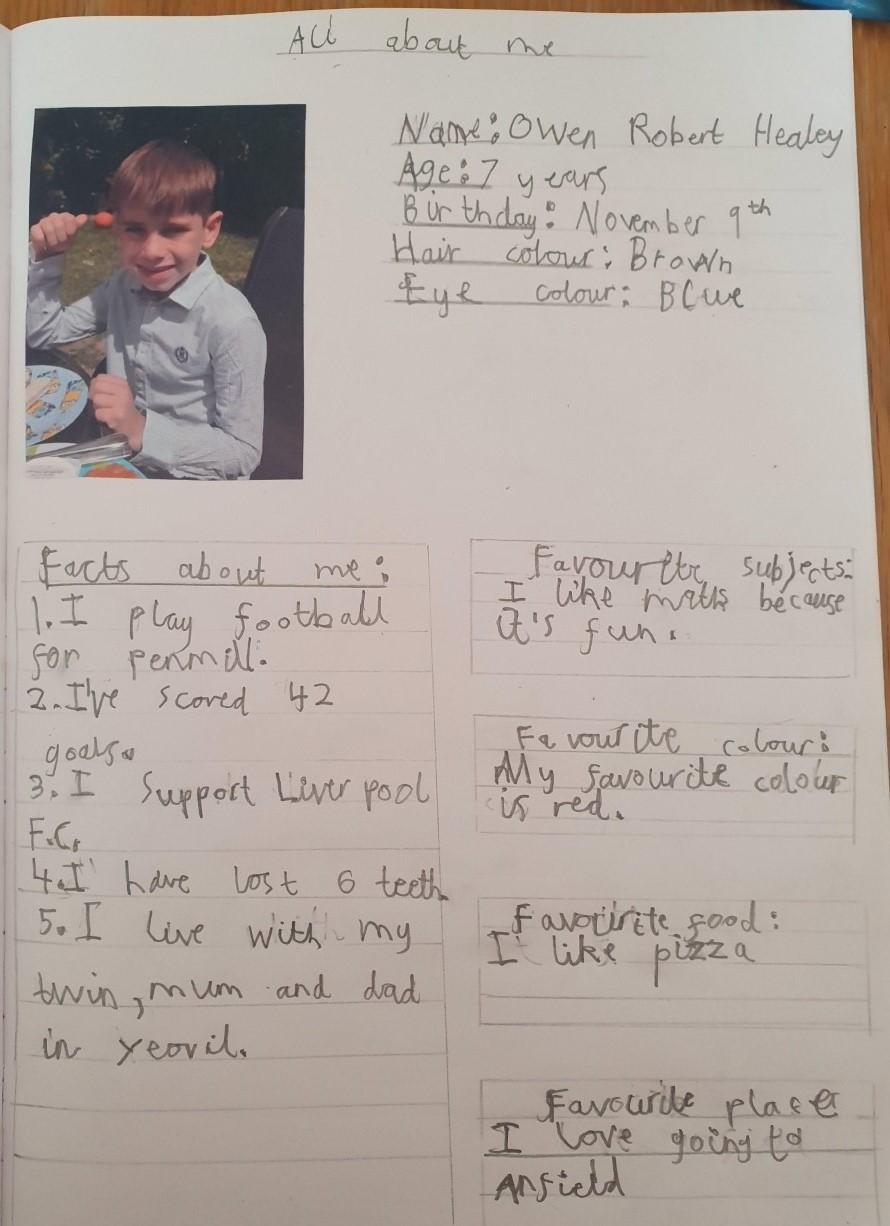 All about me
Name: Owen Robert Healey
Age: 7 years
Birthday: November 9th
Hair colour: Brown
Eye colour: Blue
Facts about me:
1. I play football
for penmill.
2. I've scored 42
goals.
3. I support Liverpool
F.C.
4. I have lost 6 teeth
5. I live with my
twin, mum and dad
in yeovil.
Favourite subjects:
I like maths because
it's fun.
Favourite colour:
My favourite colour
is red.
Favourite food:
I like pizza
Favourite place
I love going to
Anfield